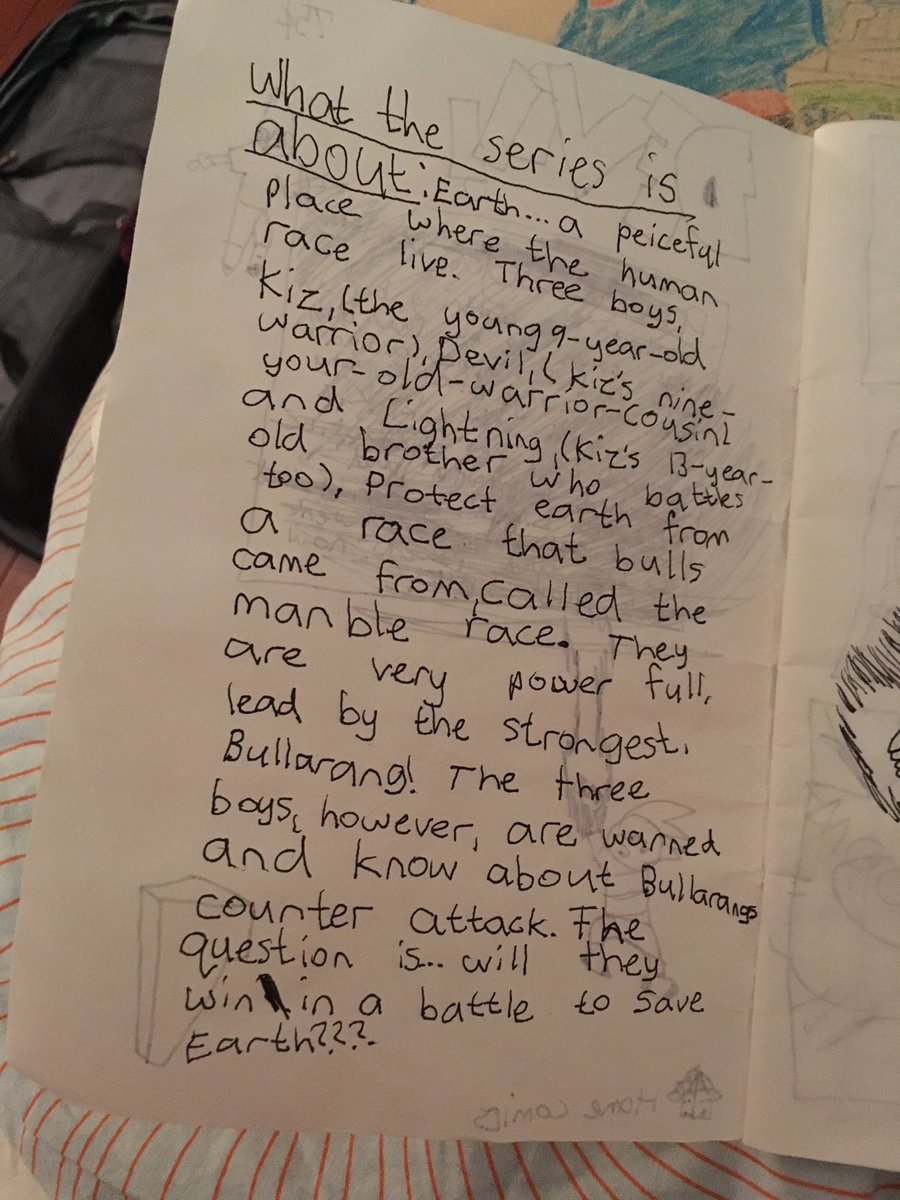 What the series is
about: Earth... a peiceful
place where the human
race live. Three boys,
Kiz, (the young 9-year-old
warrior), Devil, (Kiz's nine-
your-old-warrior-cousin)
and Lightning, (Kiz's 13-year-
old brother who battles
too), Protect earth from
a race that bulls
came from, called the
manble race. They
are very power full,
lead by the strongest,
Bullarang! The three
boys, however, are warned
and know about Bullarangs
counter attack. The
question is... will they
win in a battle to save
Earth???.
Home comics